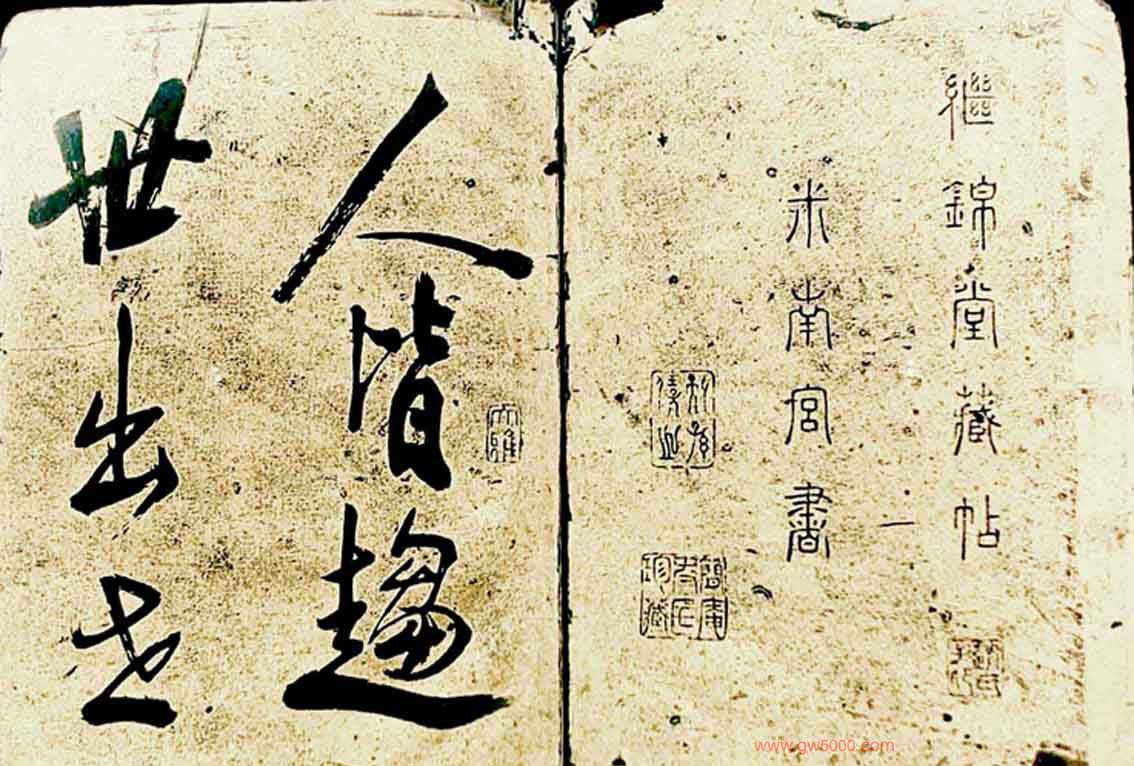 繼錦堂藏帖
一
米南宮書
人皆趨
大雅
世出世
www.gw5000.com